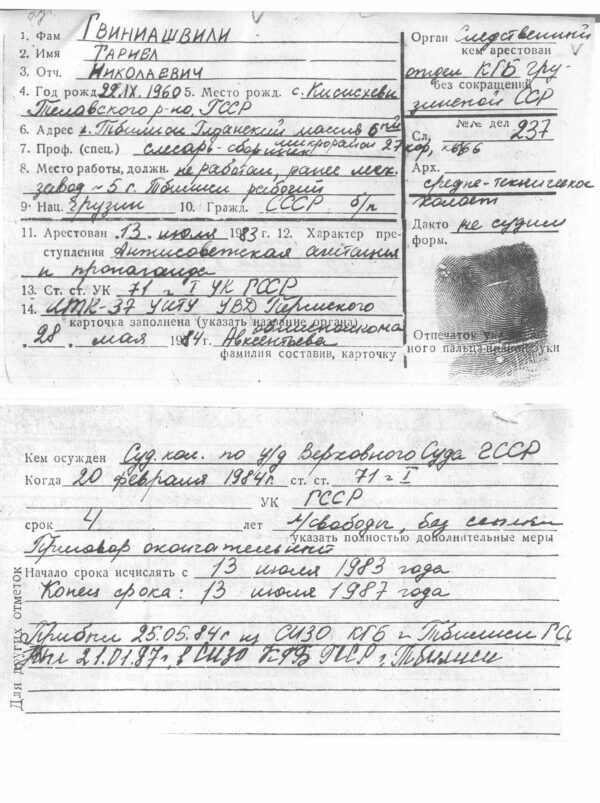 1. Фам ГВИНИАШВИЛИ
2. Имя ТАРИЕЛ
3. Отч. НИКОЛАЕВИЧ
4. Год рожд 29.IX.1960 5. Место рожд. с. Кисисхеви
Телавского р-на, ГССР
6. Адрес г. Тбилиси Глданский массив 6ой
микрорайон 27 кор, кв 66
7. Проф. (спец.) слесарь-сборщик
8. Место работы, должн. не работал, ранее мех.
завод-5 г. Тбилиси рабочий
9. Нац. грузин 10. Гражд. СССР б/п
11. Арестован 13. июля 1983 г. 12. Характер пре-
ступления Антисоветская агитация
и пропаганда
13. Ст. ст. УК 71 ч I УК ГССР
14. ИТК-37 УИТУ УВД Пермского
облисполкома
карточка заполнена (указать название органа)
28. мая 1984 г. Авксентьева
фамилия составив, карточку
Орган Следственный
кем арестован
отдел КГБ Гру-
без сокращений
зинской ССР
№№ дел
Сл, 237
Арх.
средне-техническое
холост
Дакто не судим
форм.
Отпечаток ука
ного пальца правой руки
Кем осужден Суд. кол. по у/д Верховного Суда ГССР
Когда 20 февраля 1984г. ст. ст. 71 ч I
УК ГССР
срок 4 лет л/свободы, без ссылки
указать полностью дополнительные меры
Приговор окончательный
Начало срока исчислять с 13 июля 1983 года
Конец срока: 13 июля 1987 года
Для других отметок
Прибыл 25.05.84г из СИЗО КГБ г Тбилиси
Выб 21.01.87г. в СИЗО КГБ ГССР г. Тбилиси